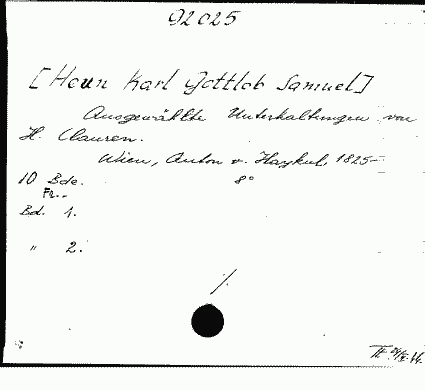 92025
[Heun Karl Gottlob Samuel]
Ausgewählte Unterhaltungen von
H. Clauren.
Wien, Anton v. Haykul, 1825–
10 Bde. 8°
Fr.-
Bd. 1.
" 2.